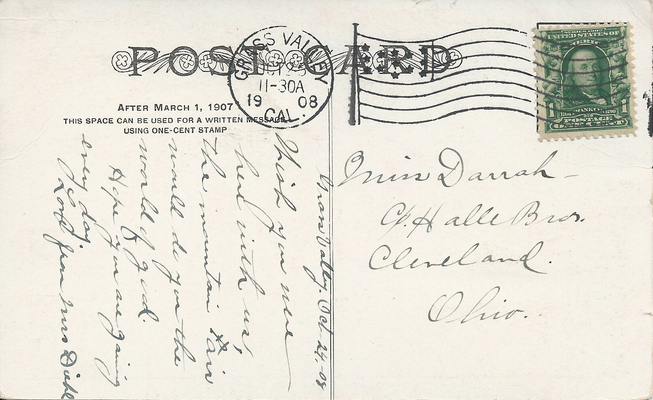 POST CARD
GRASS VALLEY
11-30A
1908
CAL.
SERIES 1902
UNITED STATES OF AMERICA
FRANKLIN
1 1
POSTAGE
ONE CENT
AFTER MARCH 1, 1907
THIS SPACE CAN BE USED FOR A WRITTEN MESSAGE
USING ONE-CENT STAMP
Grass Valley, Oct 24, 08
Wish you were
here with us,
the mountain air
would do you the
world of good.
Hope you are going
every day.
Love from Mrs Diehl
Miss Darrah -
c/o Halle Bros.
Cleveland.
Ohio.